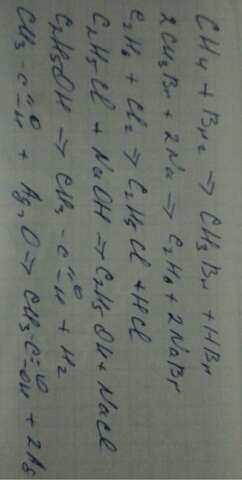 CH4 + Br2 → CH3Br + HBr
2CH3Br + 2Na → C2H6 + 2NaBr
C2H6 + Cl2 → C2H5Cl + HCl
C2H5Cl + NaOH → C2H5OH + NaCl
C2H5OH → CH3-C=O-H + H2
CH3-C=O-H + Ag2O → CH3-C=O-OH + 2Ag